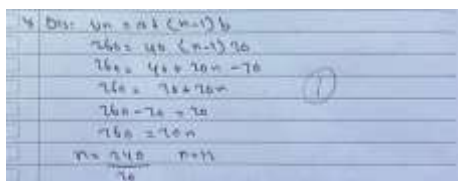 Un = a + (n-1) b
260 = 40 (n-1) 20
260 = 40 + 20n - 20
260 = 20 + 20n
260 - 20 = 20
260 = 20n
n = 240 n = 12
20
1